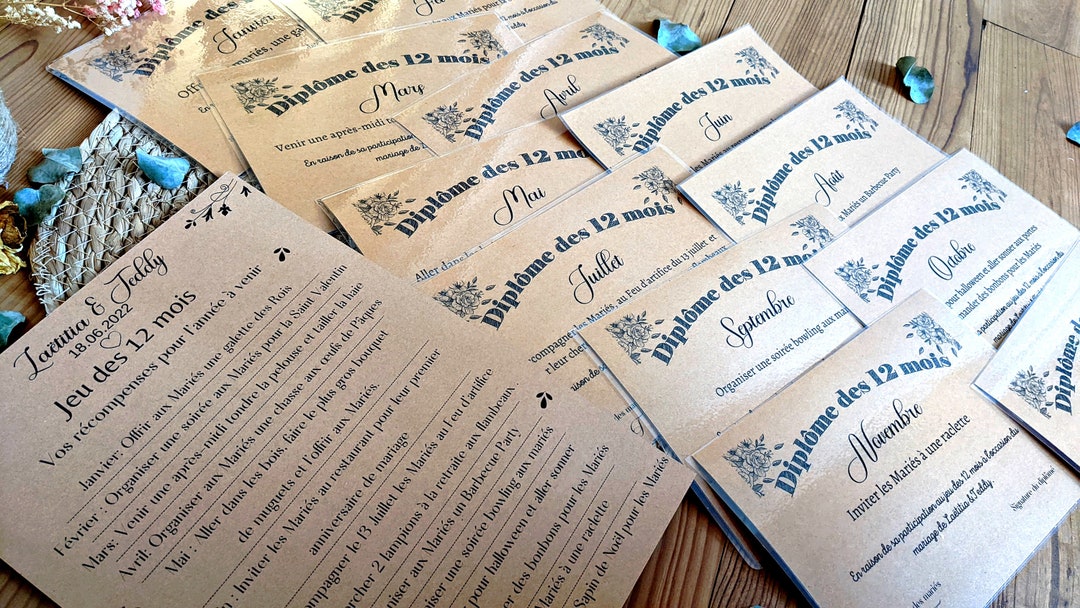 Laëtitia & Teddy
18.06.2022
Jeu des 12 mois
Vos récompenses pour l'année à venir
Janvier: Offrir aux Mariés une galette des Rois
Février : Organiser une soirée aux Mariés pour la Saint Valentin
Mars: Venir une après-midi tondre la pelouse et tailler la haie
Avril: Organiser aux Mariés une chasse aux œufs de Pâques
Mai : Aller dans les bois, faire le plus gros bouquet
de muguets et l'offrir aux Mariés.
: Inviter les Mariés au restaurant pour leur premier
anniversaire de mariage
compagner le 13 Juillet les Mariés au Feu d'artifice
ercher 2 lampions à la retraite aux flambeaux
niser aux Mariés un Barbecue Party
aniser une soirée bowling aux mariés
pour halloween et aller sonner
er des bonbons pour les Mariés
Mariés à une raclette
Sapin de Noël pour les Mariés
Diplôme
Janvier
mariés, une gal
Diplôme des 12 mois
Diplôme des 12 mois
Mars
Venir une après-midi to
En raison de sa participation
mariage de
Diplôme des 12 mois
Avril
Diplôme des 12 mo
Mai
Aller dans
Diplôme des 12 mois
Juin
Diplôme des 12 mois
Juillet
compagner les Mariés, au Feu d'artifice du 13 juillet et
Diplôme des 12 mois
Août
x Mariés un Barbecue Party
Diplôme des 12 mo
Sptembre
Organiser une soirée bowling aux ma
Diplôme des 12 mois
Octobre
pour halloween et aller sonner aux portes
mander des bonbons pour les Mariés
Diplôme des 12 mois
Novembre
Inviter les Mariés à une raclette
En raison de sa participation au jeu des 12 mois à l'occasion du
mariage de Laëtitia & Teddy
Signature du diplômé
Diplôm